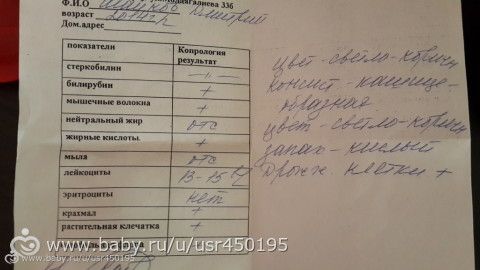 Ф.И.О Дмитрий
возраст 2014 г.р
Дом.адрес
показатели Копрология результат
стеркобилин - " -
билирубин +
мышечные волокна +
нейтральный жир отс
жирные кислоты. +
мыла отс
лейкоциты 13-15
эритроциты нет
крахмал +
растительная клечатка +
цвет - светло-коричн
консист - кашице-
образная
цвет - светло-коричн
запах - кислый
дрожж. клетки +
www.baby.ru/u/usr450195
www.baby.ru/u/usr450195